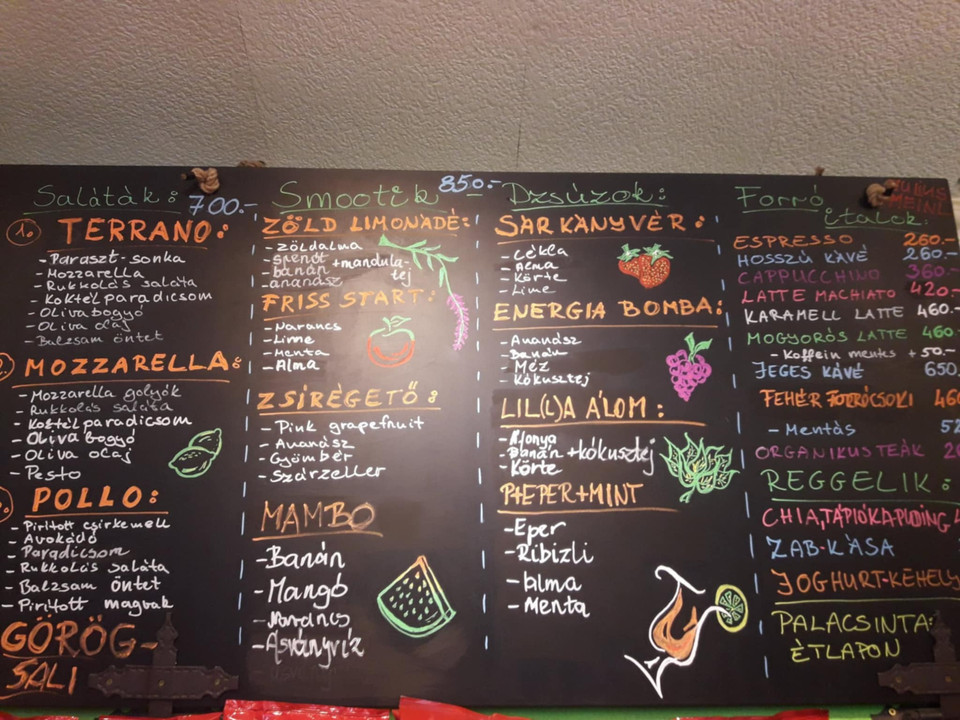 Saláták:
700.-
1. TERRANO:
- Paraszt-sonka
- Mozzarella
- Rukkolás saláta
- Koktél paradicsom
- Olivabogyó
- Oliva olaj
- Balzsam öntet
2. MOZZARELLA:
- Mozzarella golyók
- Rukkolás saláta
- Koktél paradicsom
- Oliva bogyó
- Oliva olaj
- Pesto
POLLO:
- Pirított csirkemell
- Avokádó
- Paradicsom
- Rukkolás saláta
- Balzsam öntet
- Pirított magvak
GÖRÖG-
SALI
Smootik
850.-
ZÖLD LIMONÁDÉ:
- Zöldalma
- Spenót
- banán +mandula-
tej
- ananász
FRISS START:
- Narancs
- Lime
- Menta
- Alma
ZSÍRÉGETŐ:
- Pink grapefruit
- Ananász
- Gyömbér
- Szárzeller
MAMBO
- Banán
- Mangó
- Narancs
- Ásványvíz
Dzsúzok:
SÁRKÁNYVÉR:
- Cékla
- Alma
- Körte
- Lime
ENERGIA BOMBA:
- Ananász
- Banán
- Méz
- Kókusztej
LIL(L)A ÁLOM:
- Áfonya
- Banán +kókusztej
- Körte
P+EPER+MINT
- Eper
- Ribizli
- alma
- Menta
JULIUS
MEINL
Forró
italok:
ESPRESSO 260.-
HOSSZÚ KÁVÉ 260.-
CAPPUCCHINO 360.-
LATTE MACHIATO 420.-
KARAMELL LATTE 460.-
MOGYORÓS LATTE 460.-
- Koffein mentes +50.-
JEGES KÁVÉ 650.
FEHÉR FORRÓCSOKI 460
- Mentás
ORGANIKUS TEÁK
REGGELIK:
CHIA, TÁPIÓKA-PUDING
ZAB-KÁSA
JOGHURT-KEHELY
PALACSINTA:
ÉTLAPON